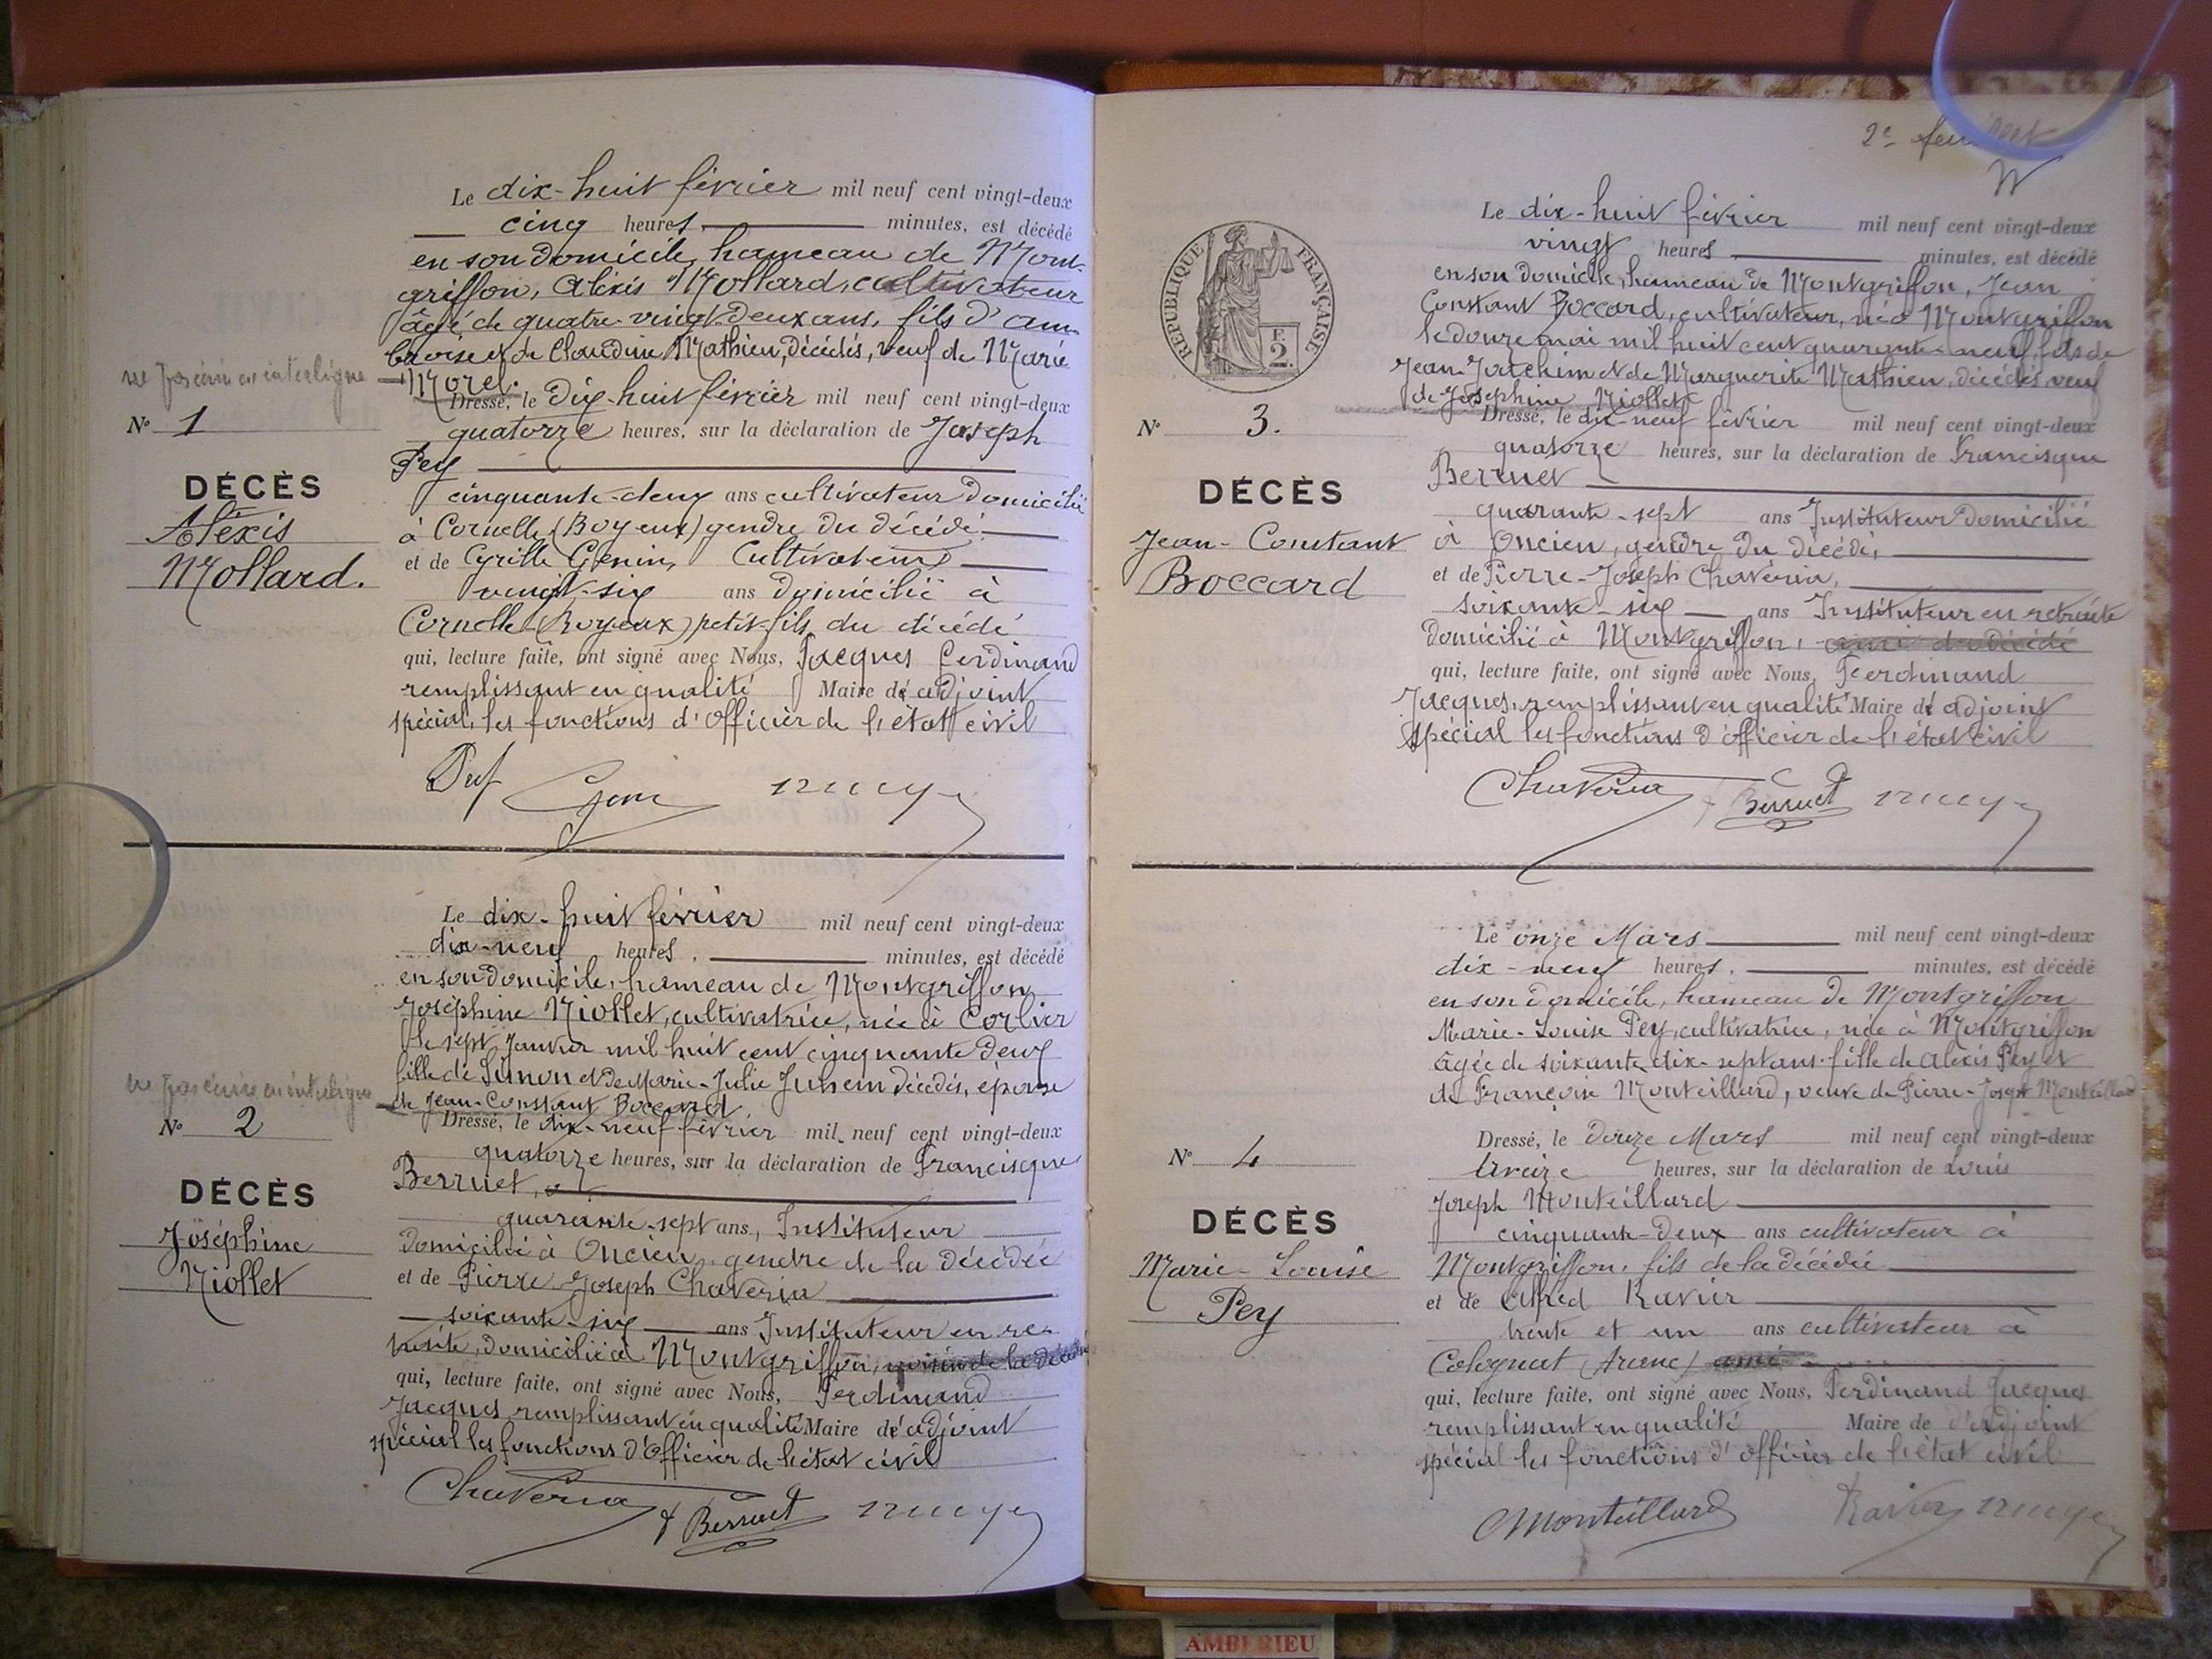 Le dix-huit février mil neuf cent vingt-deux
cinq heures minutes, est décédé
en son domicile, hameau de Mont-
griffon, Alexis Mollard, cultivateur
âgé de quatre-vingt-deux ans, fils d'Am-
broise et de Claudine Mathieu, décédés, veuf de Marie
Morel.
ne pas écrire en interligne
N° 1
DÉCÈS
Aléxis
Mollard.
Dressé, le dix-huit février mil neuf cent vingt-deux
quatorze heures, sur la déclaration de Joseph
Pey
cinquante-deux ans cultivateur domicilié
à Cornelle (Boyeux) gendre du décédé
et de Cyrille Genin, Cultivateur
vingt-six ans domicilié à
Cornelle (Boyeux) petit-fils du décédé
qui, lecture faite, ont signé avec Nous, Jacques Ferdinand
remplissant en qualité Maire d'adjoint
spécial, les fonctions d'Officier de l'état civil
Le dix-huit février mil neuf cent vingt-deux
dix-neuf heures, minutes, est décédé
en son domicile, hameau de Montgriffon
Joséphine Niollet, cultivatrice, née à Corlier
le sept Janvier mil huit cent cinquante deux
fille de Simon et de Marie-Julie Juhem décédés, épouse
de Jean-Constant Boccard.
ne pas écrire en interligne
N° 2
DÉCÈS
Joséphine
Niollet
Dressé, le dix-neuf février mil neuf cent vingt-deux
quatorze heures, sur la déclaration de Francisque
Berruet,
quarante-sept ans, Instituteur
domicilié à Oncieu, gendre de la décédée
et de Pierre-Joseph Chavéria
soixante-six ans Instituteur en re-
traite, domicilié à Montgriffon, voisin de la décédée
qui, lecture faite, ont signé avec Nous, Ferdinand
Jacques remplissant en qualité Maire d'adjoint
spécial les fonctions d'Officier de l'état civil
Chaveria F Berruet
2e feuillet
RÉPUBLIQUE FRANÇAISE
F.
2.
Le dix-huit février mil neuf cent vingt-deux
vingt heures minutes, est décédé
en son domicile, hameau de Montgriffon, Jean
Constant Boccard, cultivateur, né à Montgriffon
le douze mai mil huit cent quarante-neuf, fils de
Jean-Joachim et de Marguerite Mathieu, décédés veuf
de Joséphine Niollet
N° 3.
DÉCÈS
Jean-Constant
Boccard
Dressé, le dix-neuf février mil neuf cent vingt-deux
quatorze heures, sur la déclaration de Francisque
Berruet
quarante-sept ans Instituteur domicilié
à Oncieu, gendre du décédé,
et de Pierre-Joseph Chavéria,
soixante-six ans Instituteur en retraite
domicilié à Montgriffon, ami du décédé
qui, lecture faite, ont signé avec Nous, Ferdinand
Jacques, remplissant en qualité Maire d'adjoint
spécial les fonctions d'officier de l'état civil
Chaveria F Berruet
Le onze Mars mil neuf cent vingt-deux
dix-neuf heures, minutes, est décédé
en son domicile, hameau de Montgriffon
Marie-Louise Pey, cultivatrice, née à Montgriffon
âgée de soixante-dix-sept ans fille de Alexis Pey et
de Françoise Monteillard, veuve de Pierre-Joseph Monteillard
N° 4
DÉCÈS
Marie-Louise
Pey
Dressé, le douze Mars mil neuf cent vingt-deux
treize heures, sur la déclaration de Louis
Joseph Monteillard
cinquante-deux ans cultivateur à
Montgriffon, fils de la décédée
et de Alfred Ravier
trente et un ans cultivateur à
Colognat (Aranc) ami
qui, lecture faite, ont signé avec Nous, Ferdinand Jacques
remplissant en qualité Maire de d'adjoint
spécial les fonctions d'officier de l'état civil
Monteillard Ravier
AMBERIEU